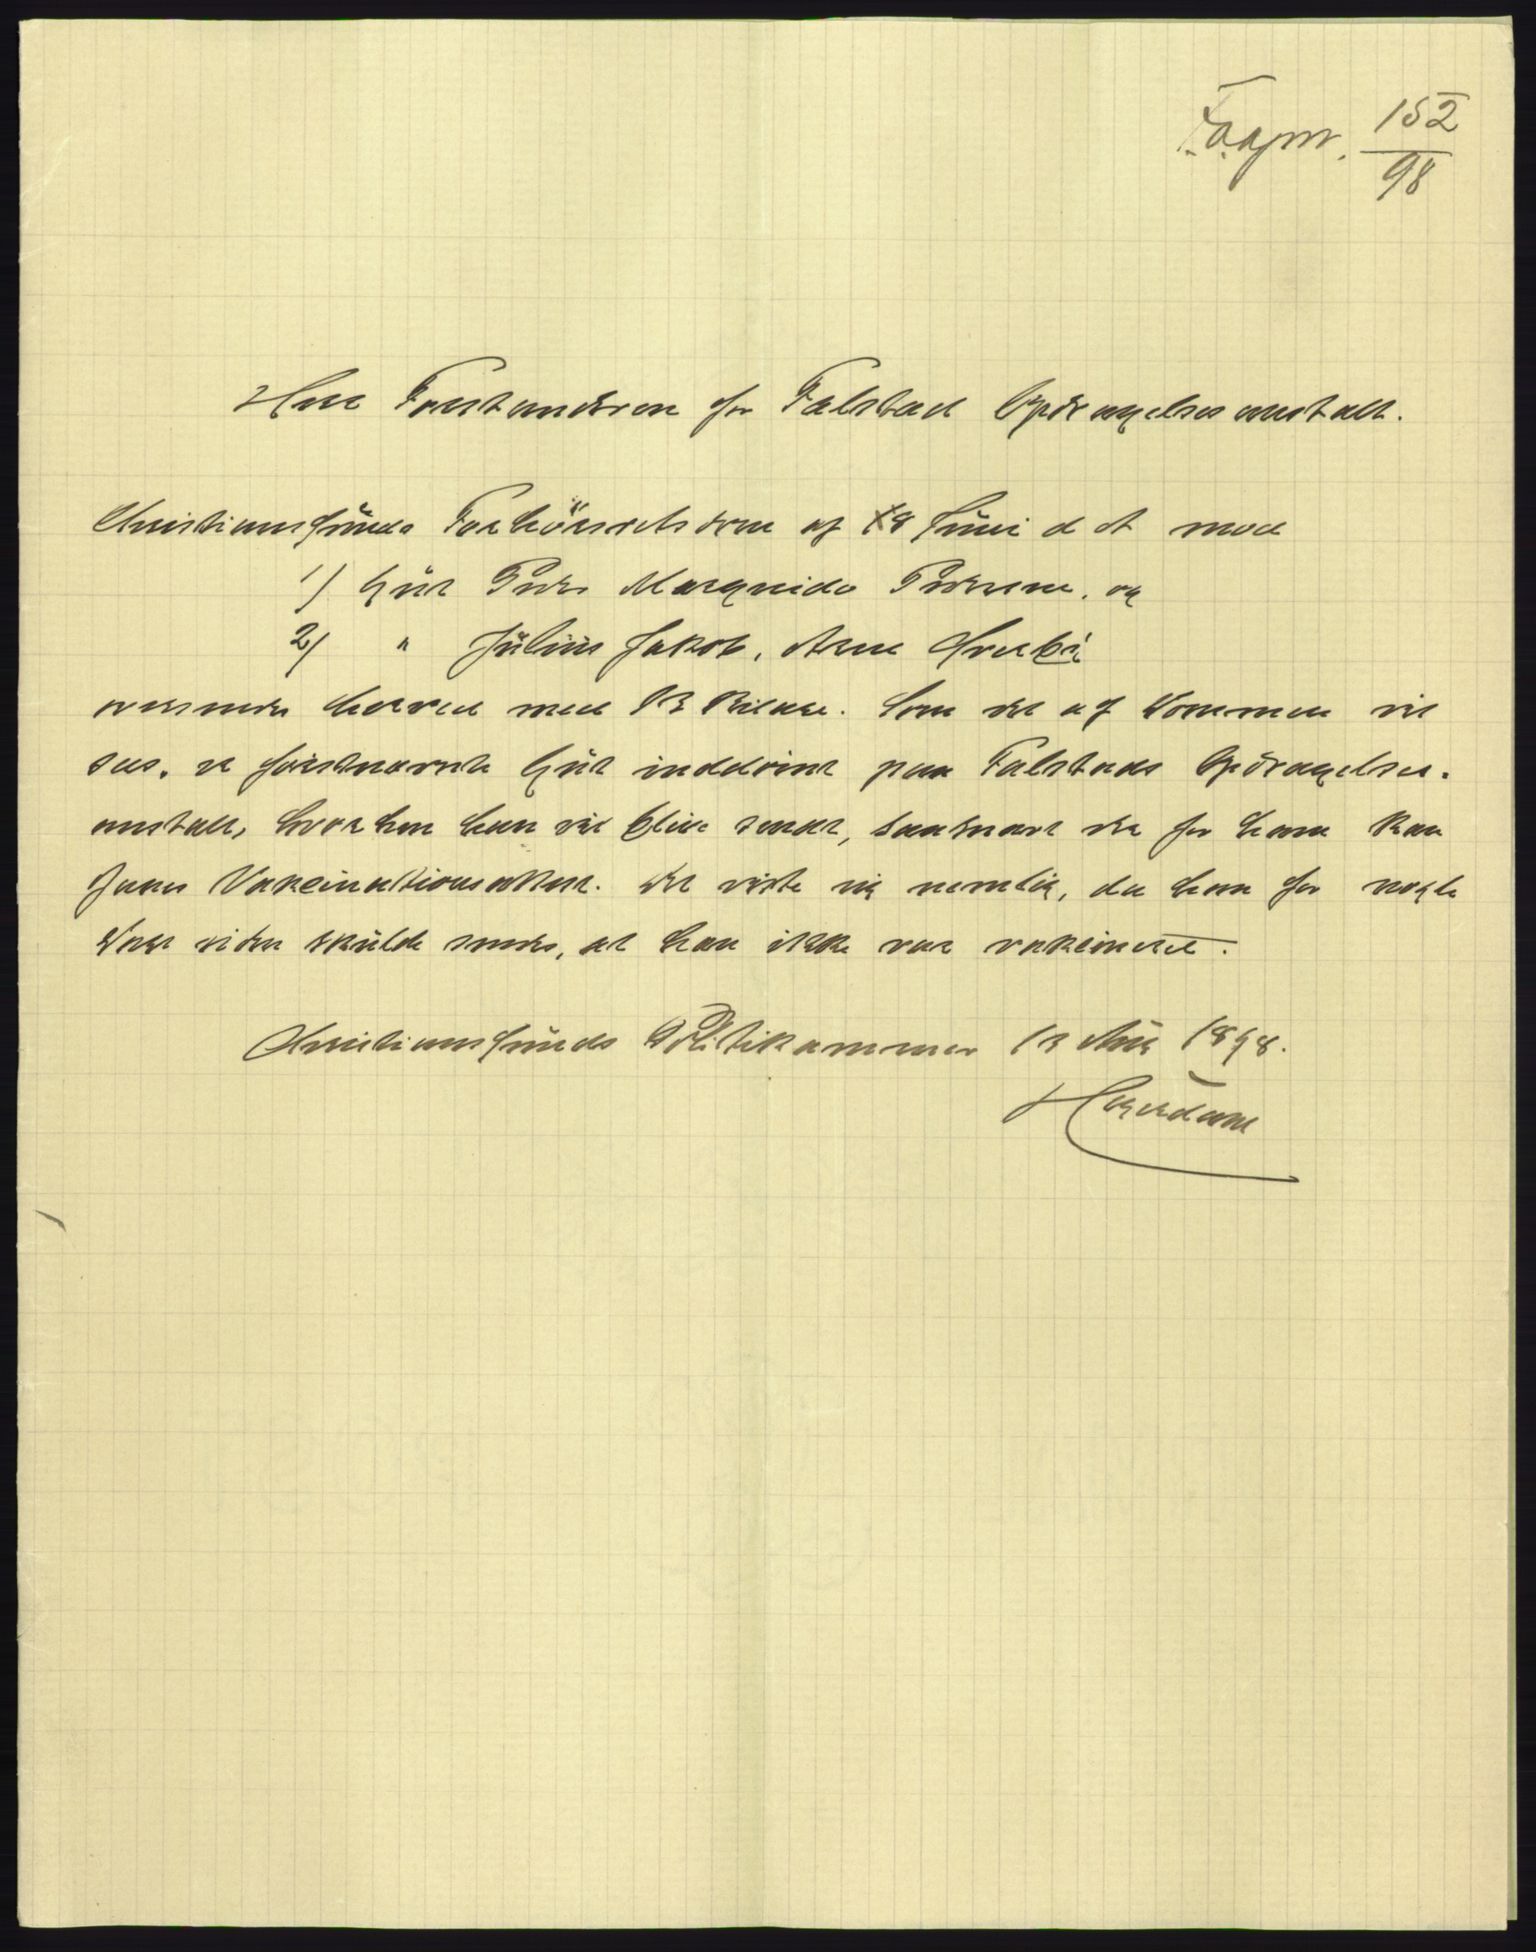 F.a.gjnr. 152/98
Herr Forstanderen for Falstad Opdragelsesanstalt.
Christianssunds Forhörsretsdom af 18 Juni d A mod
1) Gut Peder Margnido Pedersen. og
2) " Julius Jakob, Arne
oversendes herved med 13 Bilage. Som det af Dommen vil
sees, er förstnævnte Gut inddömt paa Falstads Opdragelses-
anstalt, hvorhen han vil blive sendt, saasnart der for ham kan
faaes Vakcinationsattest. Det viste sig nemlig, da han for nogle
Dage siden skulde sendes, at han ikke var vakcineret.
Christianssunds Politikammer 13 Aug 1898.